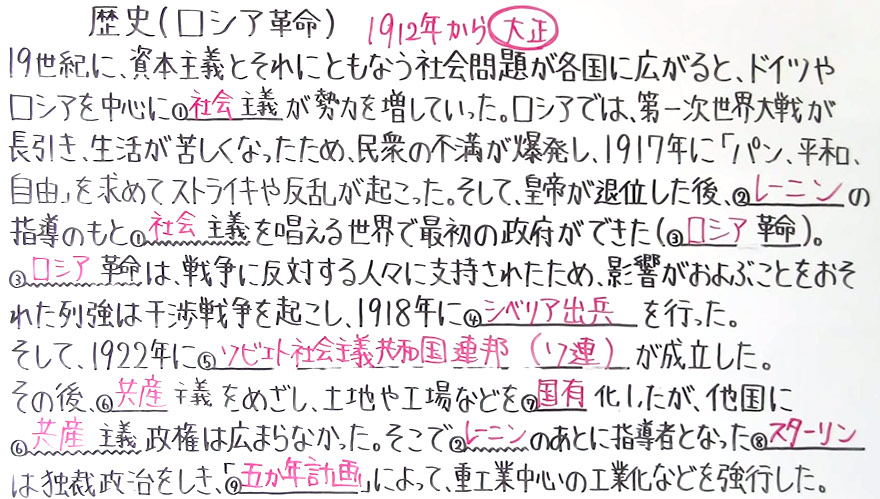 歴史(ロシア革命) 1912年から 大正
19世紀に、資本主義とそれにともなう社会問題が各国に広がると、ドイツや
ロシアを中心に①社会主義が勢力を増していった。ロシアでは、第一次世界大戦が
長引き、生活が苦しくなったため、民衆の不満が爆発し、1917年に「パン、平和、
自由」を求めてストライキや反乱が起こった。そして、皇帝が退位した後、②レーニンの
指導のもと①社会主義を唱える世界で最初の政府ができた(③ロシア革命)。
③ロシア革命は、戦争に反対する人々に支持されたため、影響がおよぶことをおそ
れた列強は干渉戦争を起こし、1918年に④シベリア出兵を行った。
そして、1922年に⑤ソビエト社会主義共和国連邦(ソ連)が成立した。
その後、⑥共産主義をめざし、土地や工場などを⑦国有化したが、他国に
⑥共産主義政権は広まらなかった。そこで②レーニンのあとに指導者となった⑧スターリン
は独裁政治をしき、「⑨五か年計画」によって、重工業中心の工業化などを強行した。